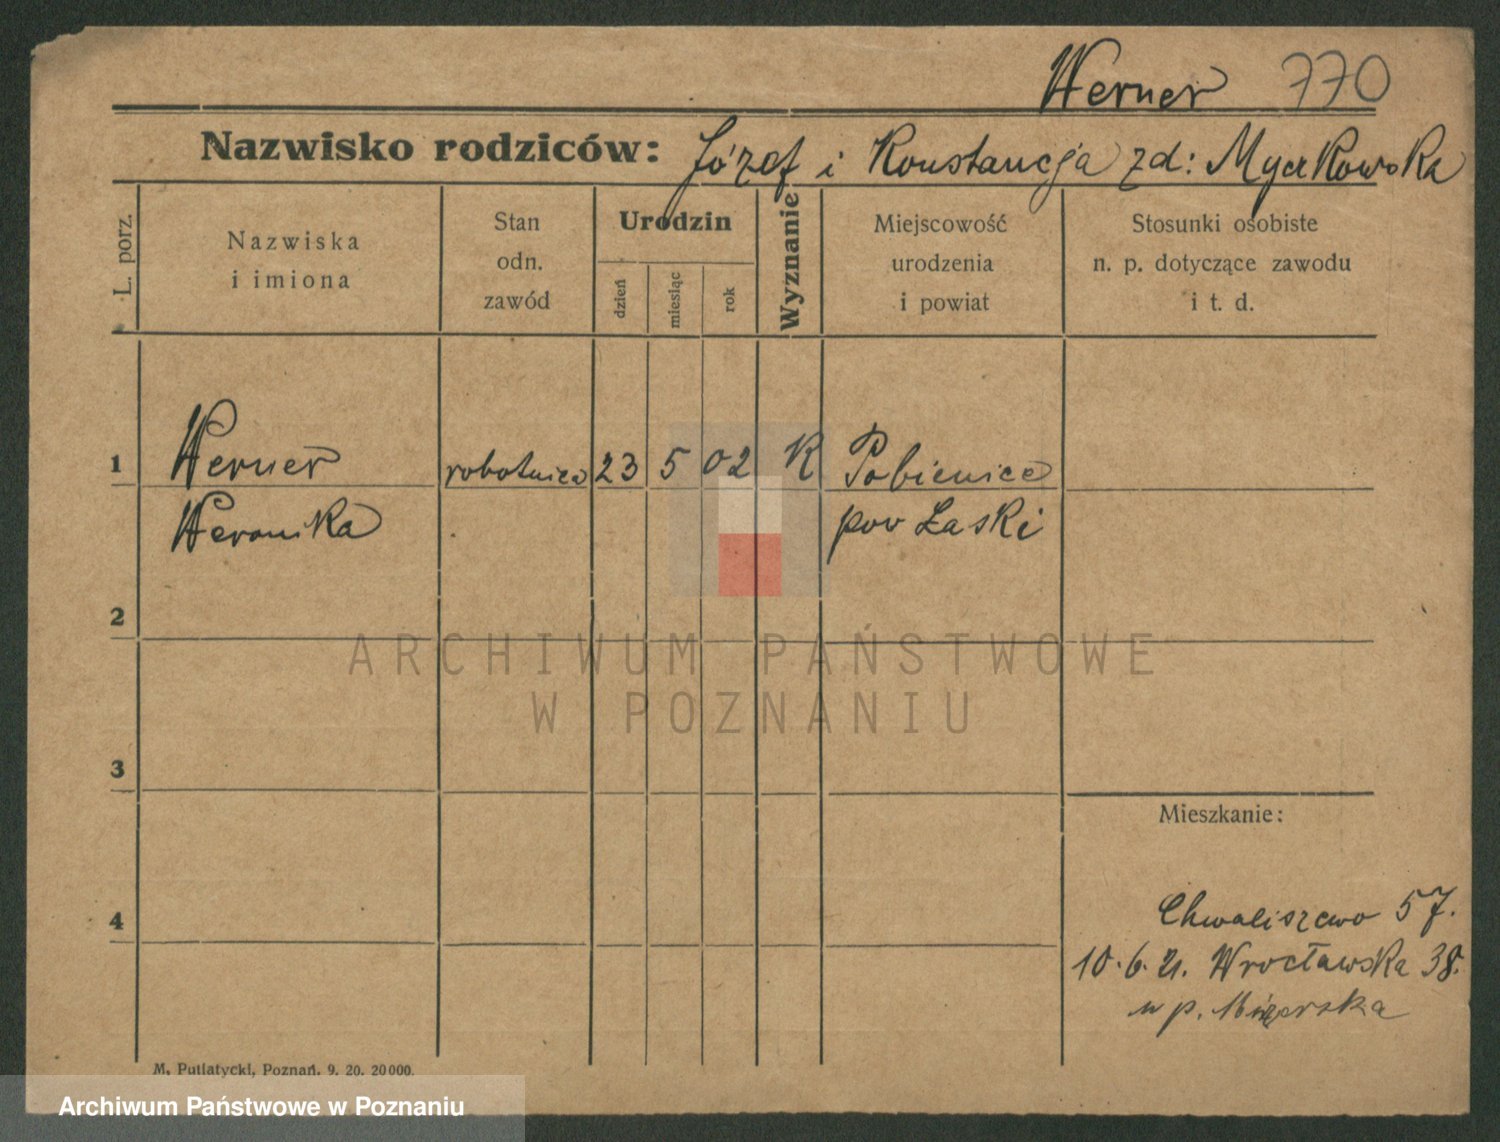 Werner 770
Nazwisko rodziców: Józef i Konstancja zd:
L. porz.
Nazwiska
i imiona
Stan
odn.
zawód
Urodzin
dzień
miesiąc
rok
Wyznanie
Miejscowość
urodzenia
i powiat
Stosunki osobiste
n. p. dotyczące zawodu
i t. d.
1 Werner robotnica 23 5 02 K Pobienice
Weronika pow Łaski
2
3
4
Mieszkanie:
Chwaliszewo 57.
10.6.21. Wrocławska 38.
u p.
M. Putiatycki, Poznań. 9. 20. 20000.
ARCHIWUM PAŃSTWOWE
W POZNANIU
Archiwum Państwowe w Poznaniu